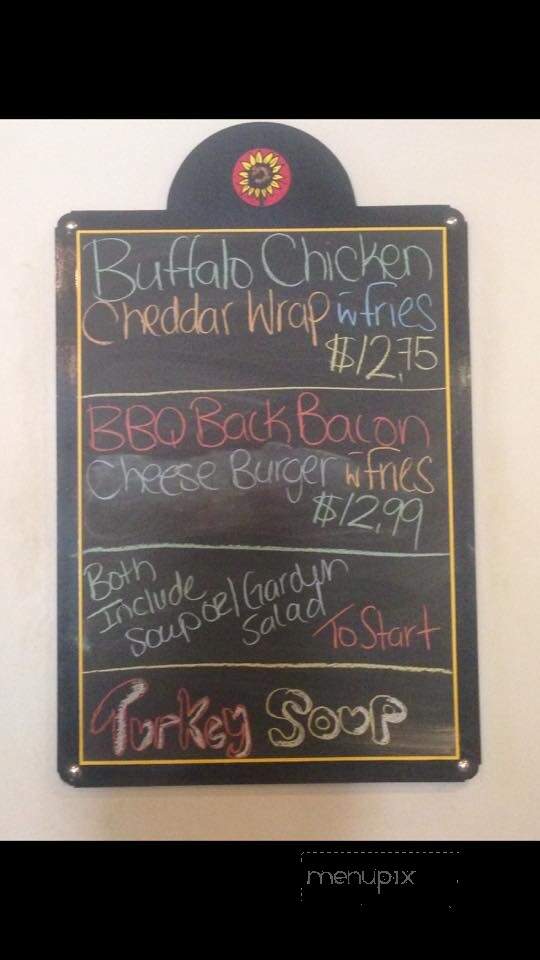 Buffalo Chicken
Cheddar Wrap w̄ fries
$12.75
BBQ Back Bacon
Cheese Burger w̄ fries
$12.99
Both
Include
Soup or Garden
Salad
To Start
Turkey Soup
menupix